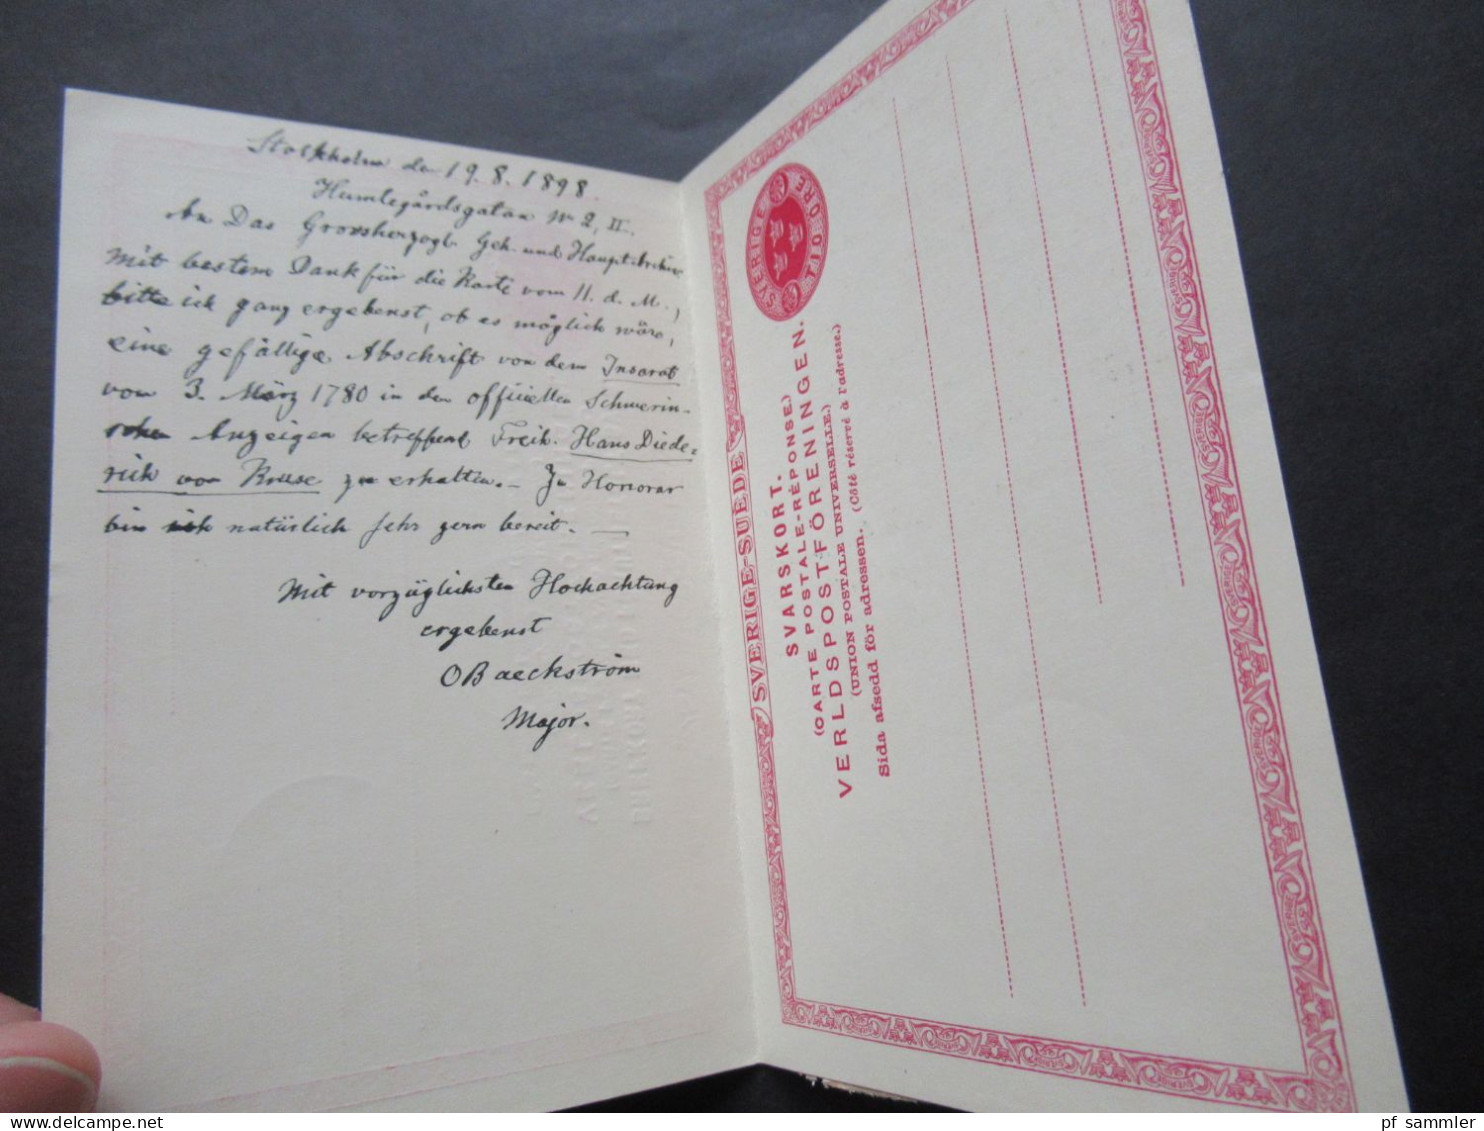 Stockholm den 19.8.1898.
Humlegårdsgatan No 2, II.
An Das Grossherzogl. Geh. und Haupt-Archiv
Mit bestem Dank für die Karte vom 11. d. M.,
bitte ich ganz ergebenst, ob es möglich wäre,
eine gefällige Abschrift von dem Inserat
vom 3. März 1780 in den officiellen Schwerin-
schen Anzeigen betreffend Freih. Hans Diede-
rich von Kruse zu erhalten. – Zu Honorar
bin ich natürlich sehr gern bereit. —
Mit vorzüglichsten Hochachtung
ergebenst
O Baeckström
Major.
SVERIGE-SUÈDE
SVERIGE
TIO ÖRE
SVARSKORT.
(CARTE POSTALE-RÉPONSE.)
VERLDSPOSTFÖRENINGEN.
(UNION POSTALE UNIVERSELLE.)
Sida afsedd för adressen. (Côté réservé à l'adresse.)
pf_sammler